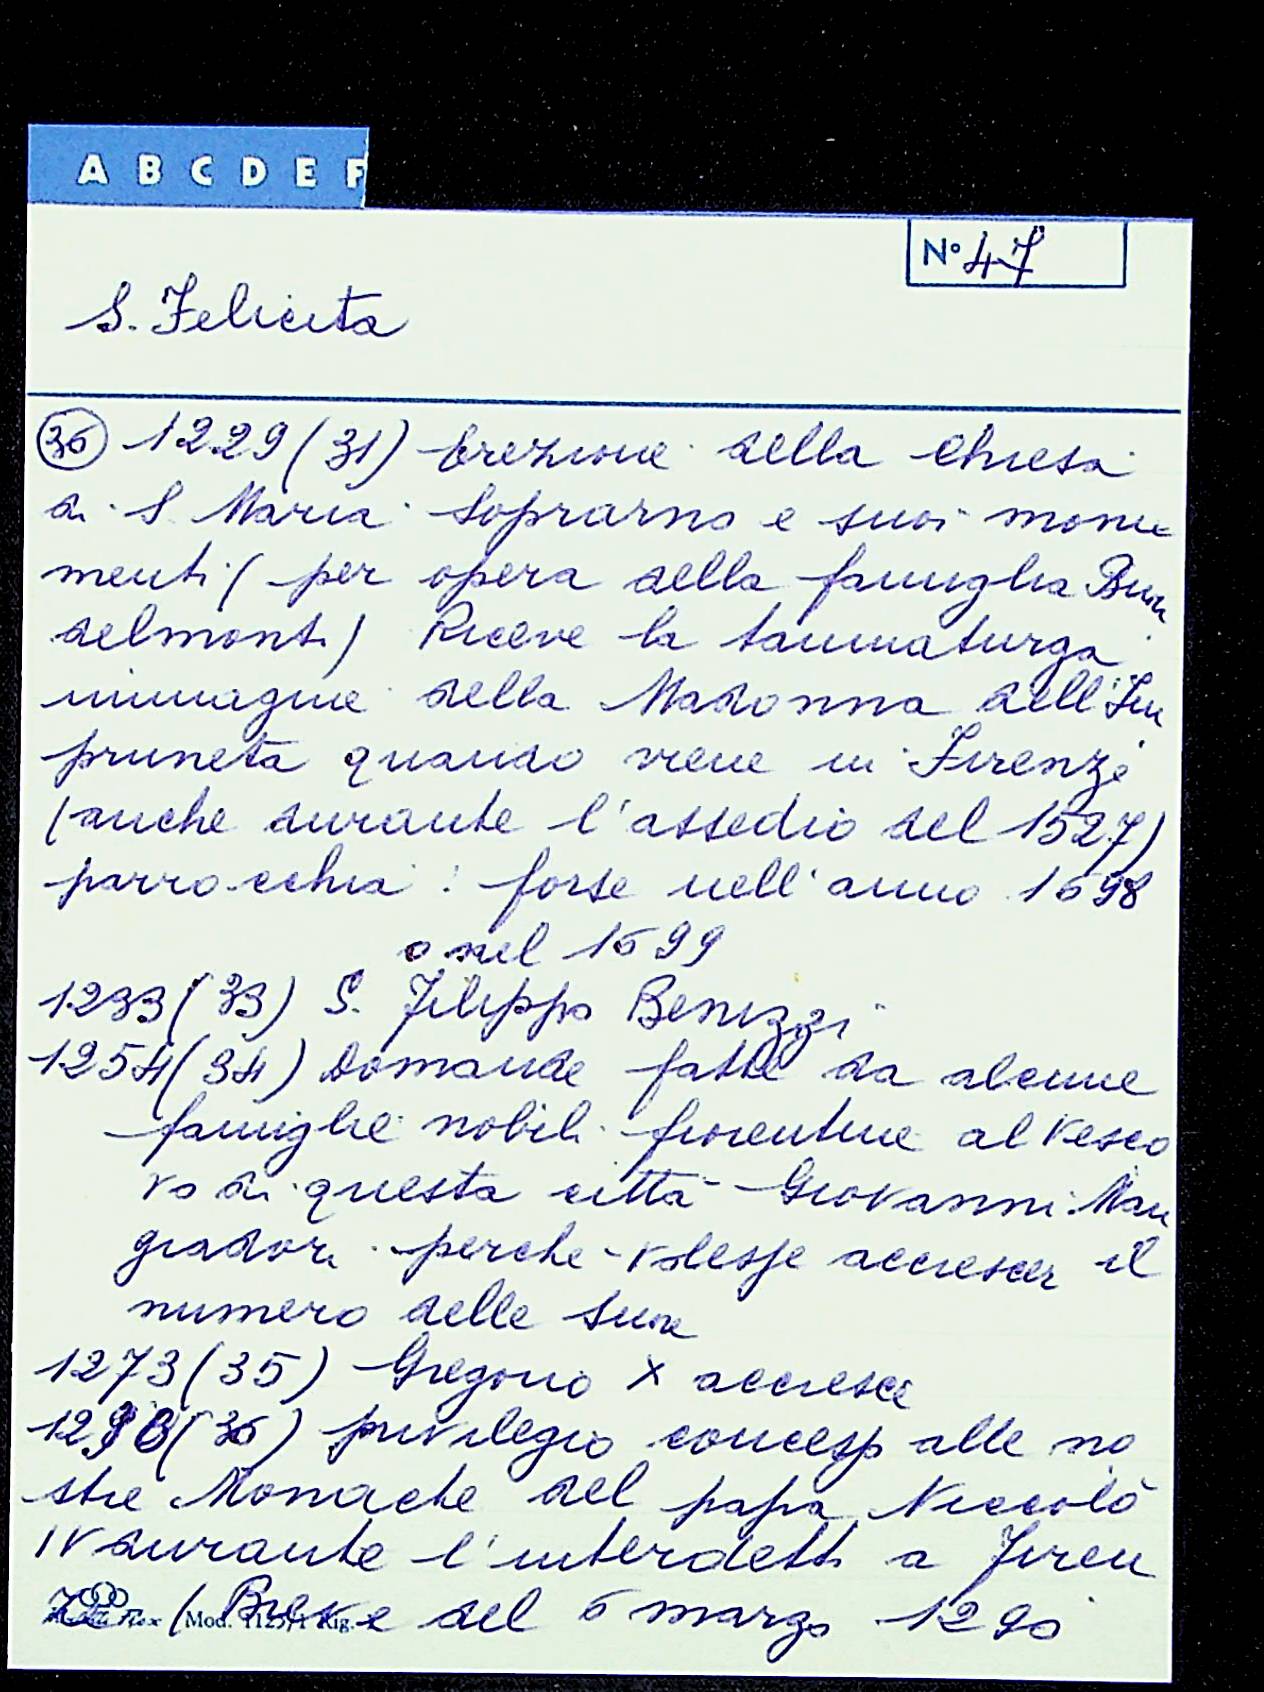 A B C D E F
N° 47
S. Felicita
36 1229 (31) Erezione della Chiesa
di S. Maria Soprarno e suoi monu
menti (per opera della famiglia Buon
delmonti) Riceve la taumaturga
immagine della Madonna dell'Im
pruneta quando viene in Firenze
(anche durante l'assedio del 1527)
parrocchia: forse nell'anno 1698
o nel 1699
1233 (33) S. Filippo Benizzi
1254 (34) Domande fatte da alcune
famiglie nobili fiorentine al Vesco
vo di questa città Giovanni Man
giadori perche volesse accrescer il
numero delle suore
1273 (35) Gregorio X accresce
(36) privilegio concesso alle no
stre Monache del papa Niccolò
IV durante l'interdetto a Firen
ze (Breve del 6 marzo 1290
Mod. Rig.